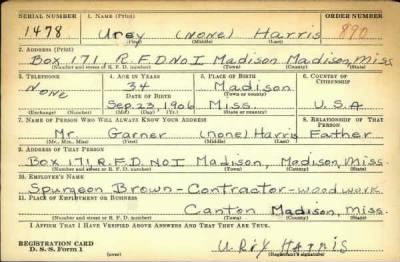 SERIAL NUMBER 1. NAME (Print) ORDER NUMBER
1478 Urey (none) Harris 890
(First) (Middle) (Last)
2. ADDRESS (Print)
Box 171 R.F.D. NO I Madison Madison, Miss.
(Number and street or R. F. D. number) (Town) (County) (State)
3. TELEPHONE 4. AGE IN YEARS 5. PLACE OF BIRTH 6. COUNTRY OF CITIZENSHIP
None 34 Madison
(Town or county)
DATE OF BIRTH
Sep. 23, 1906 Miss. U.S.A
(Exchange) (Number) (Mo.) (Day) (Yr.) (State or country)
7. NAME OF PERSON WHO WILL ALWAYS KNOW YOUR ADDRESS 8. RELATIONSHIP OF THAT PERSON
Mr. Garner (none) Harris Father
(Mr., Mrs., Miss) (First) (Middle) (Last)
9. ADDRESS OF THAT PERSON
Box 171 R.F.D. NO I Madison, Madison, Miss.
(Number and street or R. F. D. number) (Town) (County) (State)
10. EMPLOYER'S NAME
Spurgeon Brown - Contractor - wood work.
11. PLACE OF EMPLOYMENT OR BUSINESS
Canton Madison, Miss.
(Number and street or R. F. D. number) (Town) (County) (State)
I AFFIRM THAT I HAVE VERIFIED ABOVE ANSWERS AND THAT THEY ARE TRUE.
REGISTRATION CARD
D. S. S. Form 1
HARRIS
(Registrant's signature)